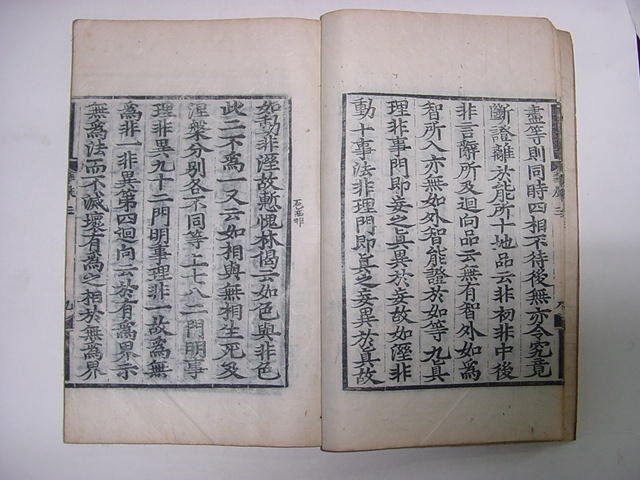 盡等則同時四相不待後無亦今究竟
斷證離於能所十地品云非初非中後
非言辭所及迴向品云無有智外如爲
智所入亦無如外智能證於如等九真
理非事門即妄之真異於妄故如溼非
動十事法非理門即真之妄異於真故
如動非溼故慙愧林偈云如色與非色
此二不爲一又云如相與無相生死及
涅槃分別各不同等上七八二門明事
理非異九十二門明事理非一故爲無
爲非一非異第四迴向云於有爲界示
無爲法而不滅壞有爲之相於無爲界